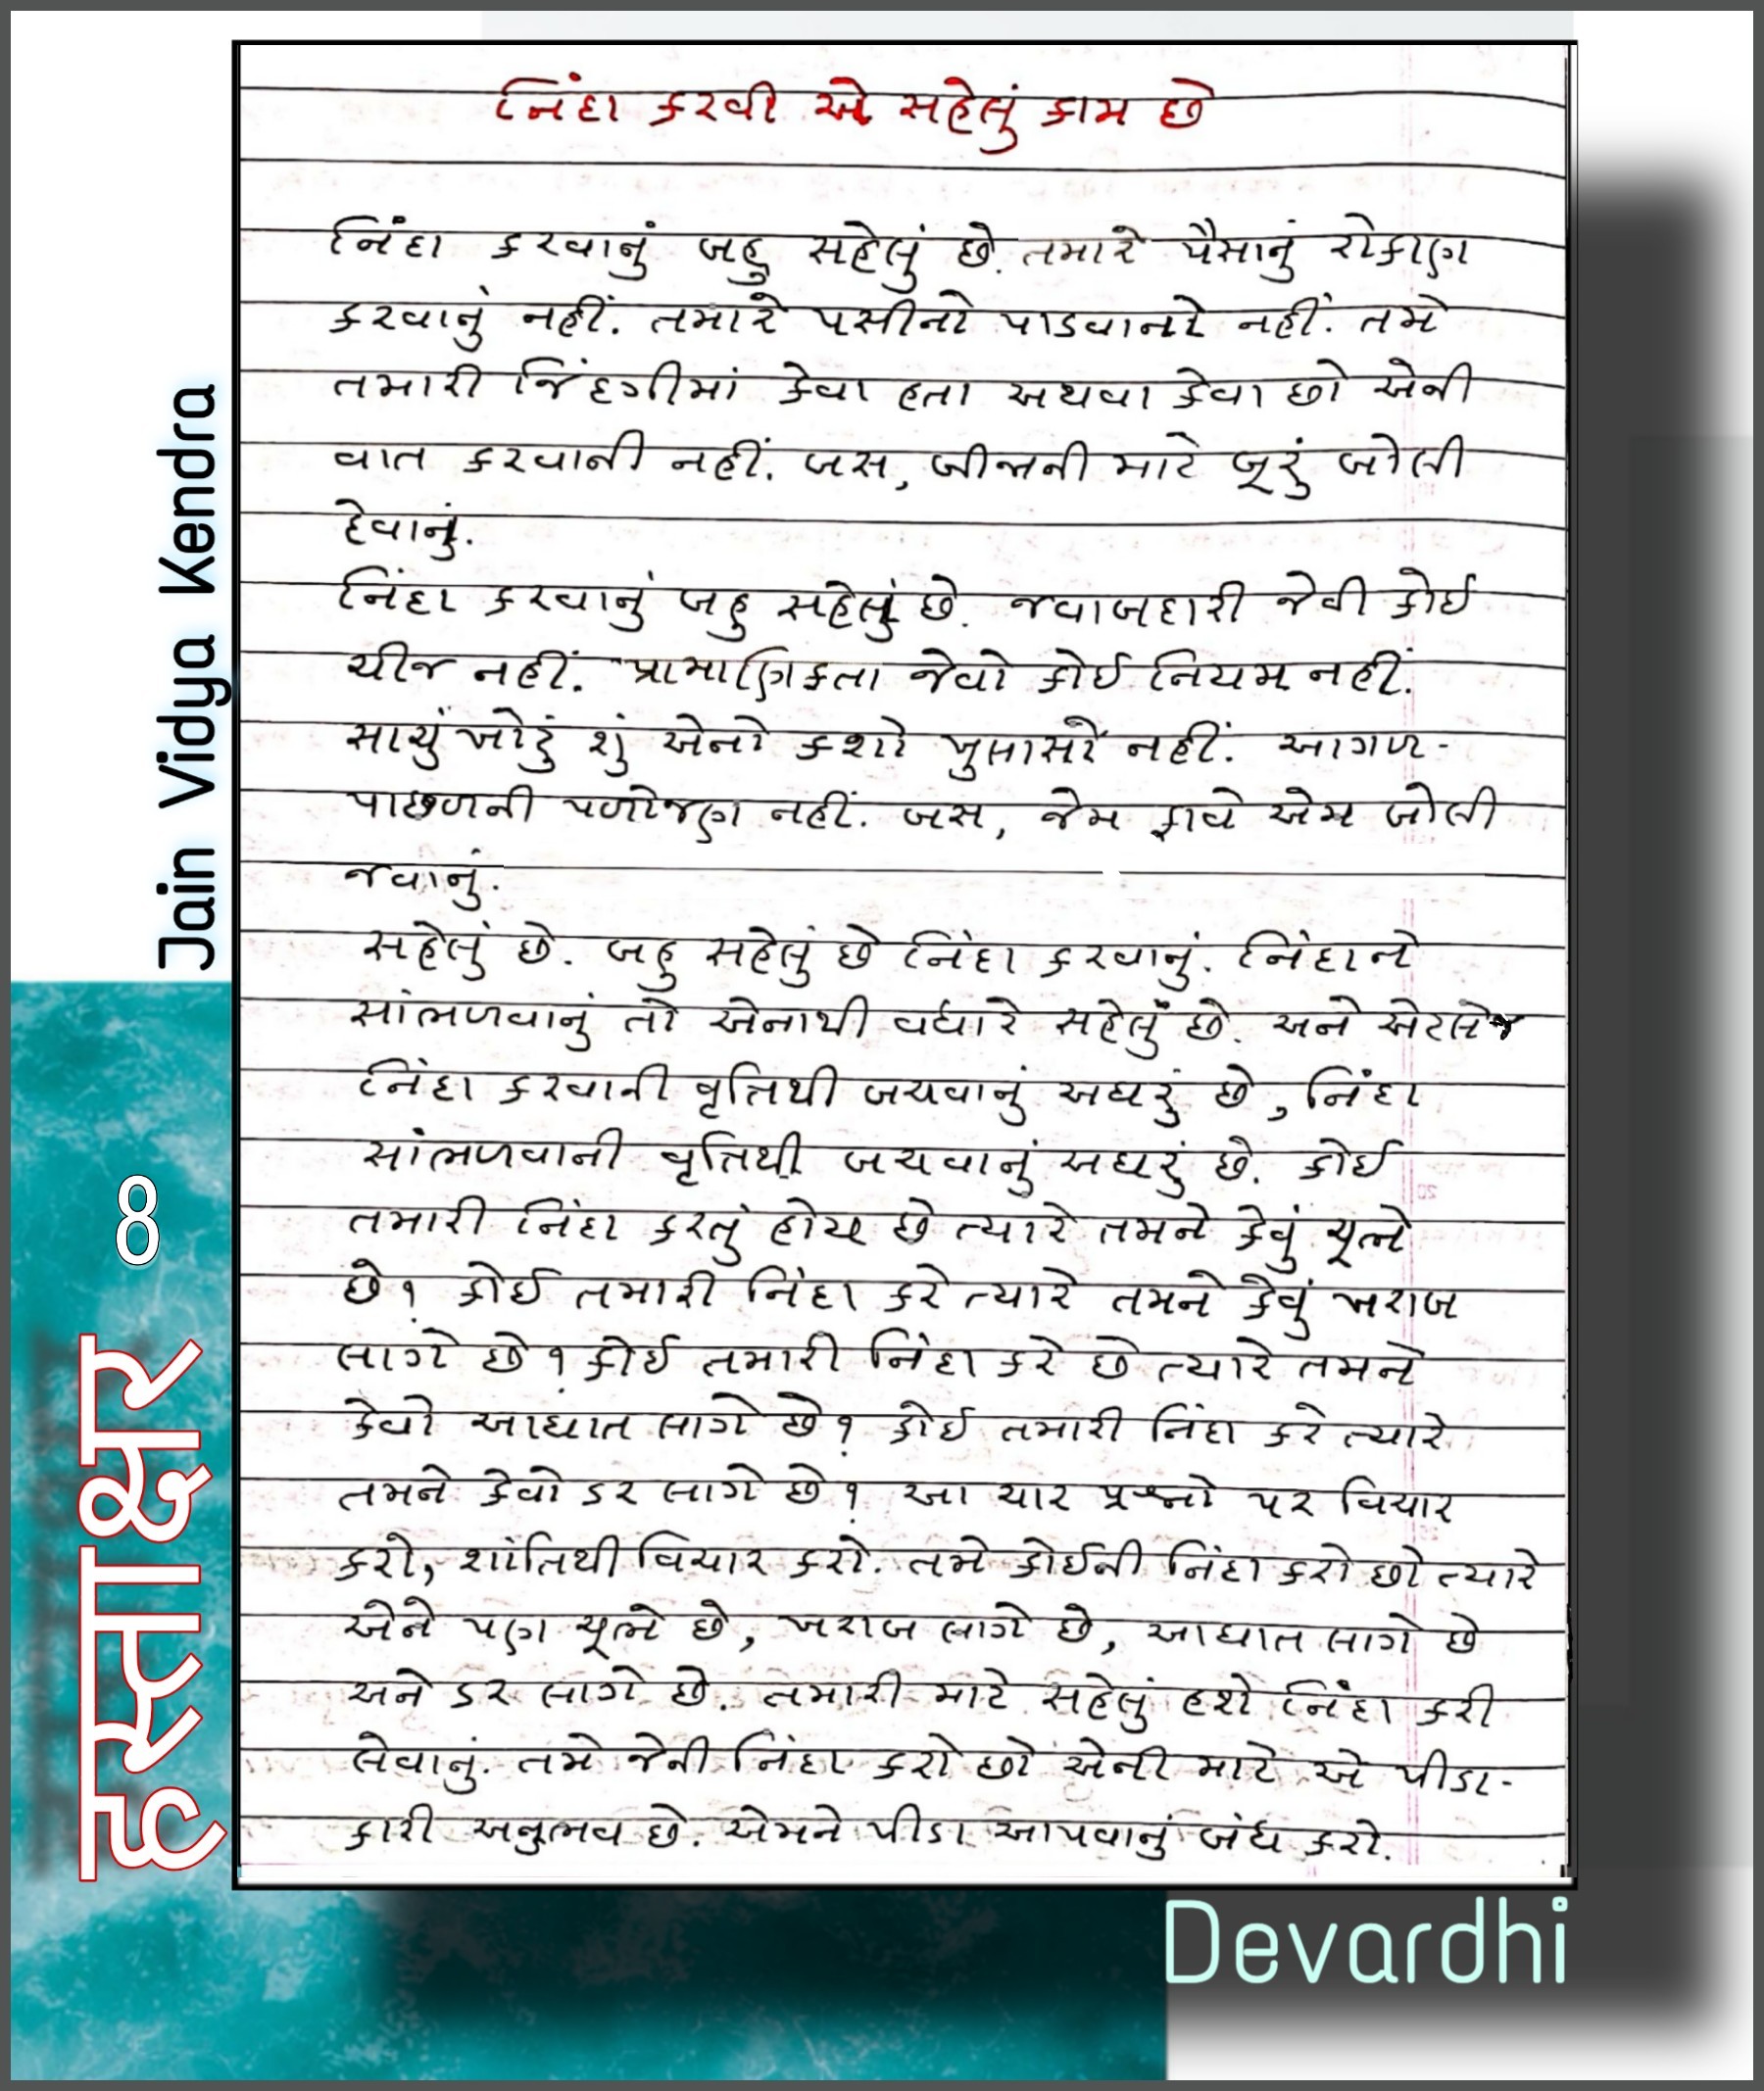 નિંદા કરવી એ સહેલું કામ છે
નિંદા કરવાનું બહુ સહેલું છે. તમારે પૈસાનું રોકાણ
કરવાનું નહીં. તમારે પસીનો પાડવાનો નહીં. તમે
તમારી જિંદગીમાં કેવા હતા અથવા કેવા છો એની
વાત કરવાની નહીં. બસ, બીજાની માટે બૂરું બોલી
દેવાનું.
નિંદા કરવાનું બહુ સહેલું છે. જવાબદારી જેવી કોઈ
ચીજ નહીં. પ્રામાણિકતા જેવો કોઈ નિયમ નહીં.
સાચું ખોટું શું એનો કશો ખુલાસો નહીં. આગળ-
પાછળની પળોજણ નહીં. બસ, જેમ ફાવે એમ બોલી
જવાનું.
સહેલું છે. બહુ સહેલું છે નિંદા કરવાનું. નિંદાને
સાંભળવાનું તો એનાથી વધારે સહેલું છે. અને એટલે જ
નિંદા કરવાની વૃત્તિથી બચવાનું અઘરું છે, નિંદા
સાંભળવાની વૃત્તિથી બચવાનું અઘરું છે. કોઈ
તમારી નિંદા કરતું હોય છે ત્યારે તમને કેવું ચૂભે
છે? કોઈ તમારી નિંદા કરે ત્યારે તમને કેવું ખરાબ
લાગે છે? કોઈ તમારી નિંદા કરે છે ત્યારે તમને
કેવો આઘાત લાગે છે? કોઈ તમારી નિંદા કરે ત્યારે
તમને કેવો ડર લાગે છે? આ ચાર પ્રશ્નો પર વિચાર
કરો, શાંતિથી વિચાર કરો. તમે કોઈની નિંદા કરો છો ત્યારે
એને પણ ચૂભે છે, ખરાબ લાગે છે, આઘાત લાગે છે
અને ડર લાગે છે. તમારી માટે સહેલું હશે નિંદા કરી
લેવાનું. તમે જેની નિંદા કરો છો એની માટે એ પીડા-
કારી અનુભવ છે. એમને પીડા આપવાનું બંધ કરો.
Jain Vidya Kendra
8
हस्ताक्षर
Devardhi